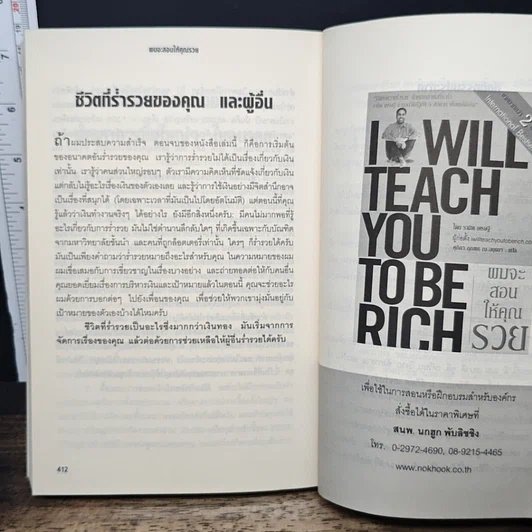 ผมจะสอนให้คุณรวย
ชีวิตที่ร่ำรวยของคุณ และผู้อื่น
ถ้าผมประสบความสำเร็จ ตอนจบของหนังสือเล่มนี้ ก็คือการเริ่มต้น
ของอนาคตอันร่ำรวยของคุณ เรารู้ว่าการร่ำรวยไม่ได้เป็นเรื่องเกี่ยวกับเงิน
เท่านั้น เรารู้ว่าคนส่วนใหญ่รอบๆ ตัวเรามีความคิดเห็นที่ชัดแจ้งเกี่ยวกับเงิน
แต่กลับไม่รู้อะไรเรื่องเงินของตัวเองเลย และรู้ว่าการใช้เงินอย่างมีจิตสำนึกอาจ
เป็นเรื่องที่สนุกได้ (โดยเฉพาะเวลาที่มันเป็นไปโดยอัตโนมัติ) แต่ตอนนี้คุณ
รู้แล้วว่าเงินทำงานจริงๆ ได้อย่างไร ยังมีอีกสิ่งหนึ่งครับ: มีคนไม่มากพอที่รู้
อะไรเกี่ยวกับการร่ำรวย มันไม่ใช่ตำนานลึกลับใดๆ ที่เกิดขึ้นเฉพาะกับบัณฑิต
จากมหาวิทยาลัยชั้นนำ และคนที่ถูกล็อตเตอรี่เท่านั้น ใครๆ ก็ร่ำรวยได้ครับ
มันเป็นเพียงคำถามว่าร่ำรวยหมายถึงอะไรสำหรับคุณ ในความหมายของผม
ผมเชื่อเสมอกับการเชี่ยวชาญในเรื่องบางอย่าง และถ่ายทอดต่อให้กับคนอื่น
คุณยอดเยี่ยมเรื่องการบริหารเงินและเป้าหมายแล้วในตอนนี้ คุณจะช่วย
ผมด้วยการบอกต่อๆ ไปยังเพื่อนของคุณ เพื่อช่วยให้พวกเขามุ่งมั่นอยู่กับ
เป้าหมายของตัวเองบ้างได้ไหมครับ
ชีวิตที่ร่ำรวยเป็นอะไรซึ่งมากกว่าเงินทอง มันเริ่มจากการ
จัดการเรื่องของคุณ แล้วต่อด้วยการช่วยเหลือให้ผู้อื่นร่ำรวยได้ครับ
412
I WILL
TEACH
YOU
TO BE
RICH
ผมจะ
สอน
ให้คุณ
รวย
เพื่อใช้ในการสอนหรือฝึกอบรมสำหรับองค์กร
สั่งซื้อได้ในราคาพิเศษที่
สนพ. นกฮูก พับลิชชิ่ง
โทร. 0-2972-4690, 08-9215-4465
www.nokhook.co.th